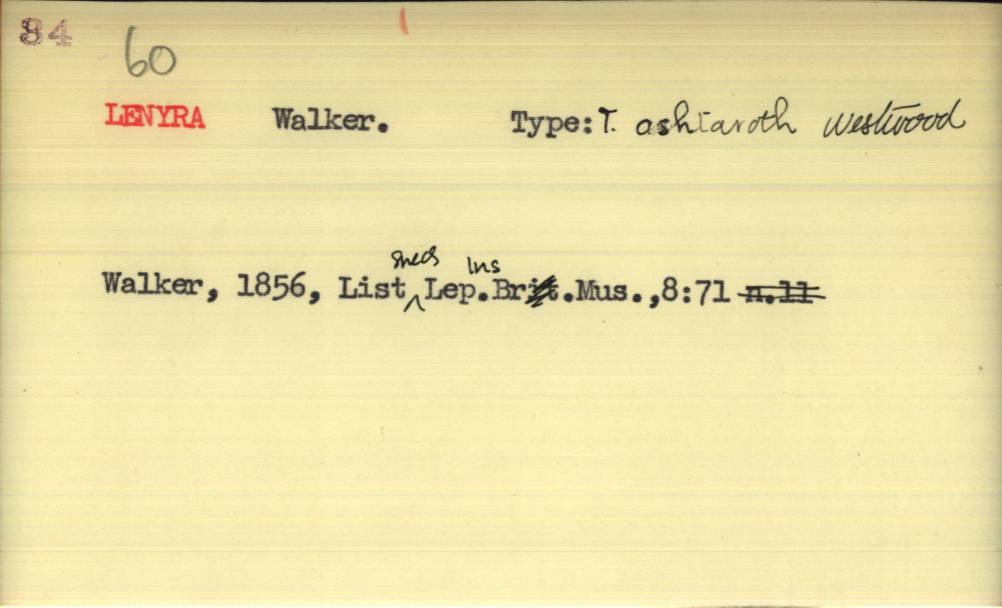 84
60
LENYRA Walker. Type: T. ashtaroth Westwood
Walker, 1856, List Specs Lep. Ins Br. Mus., 8:71 n.11